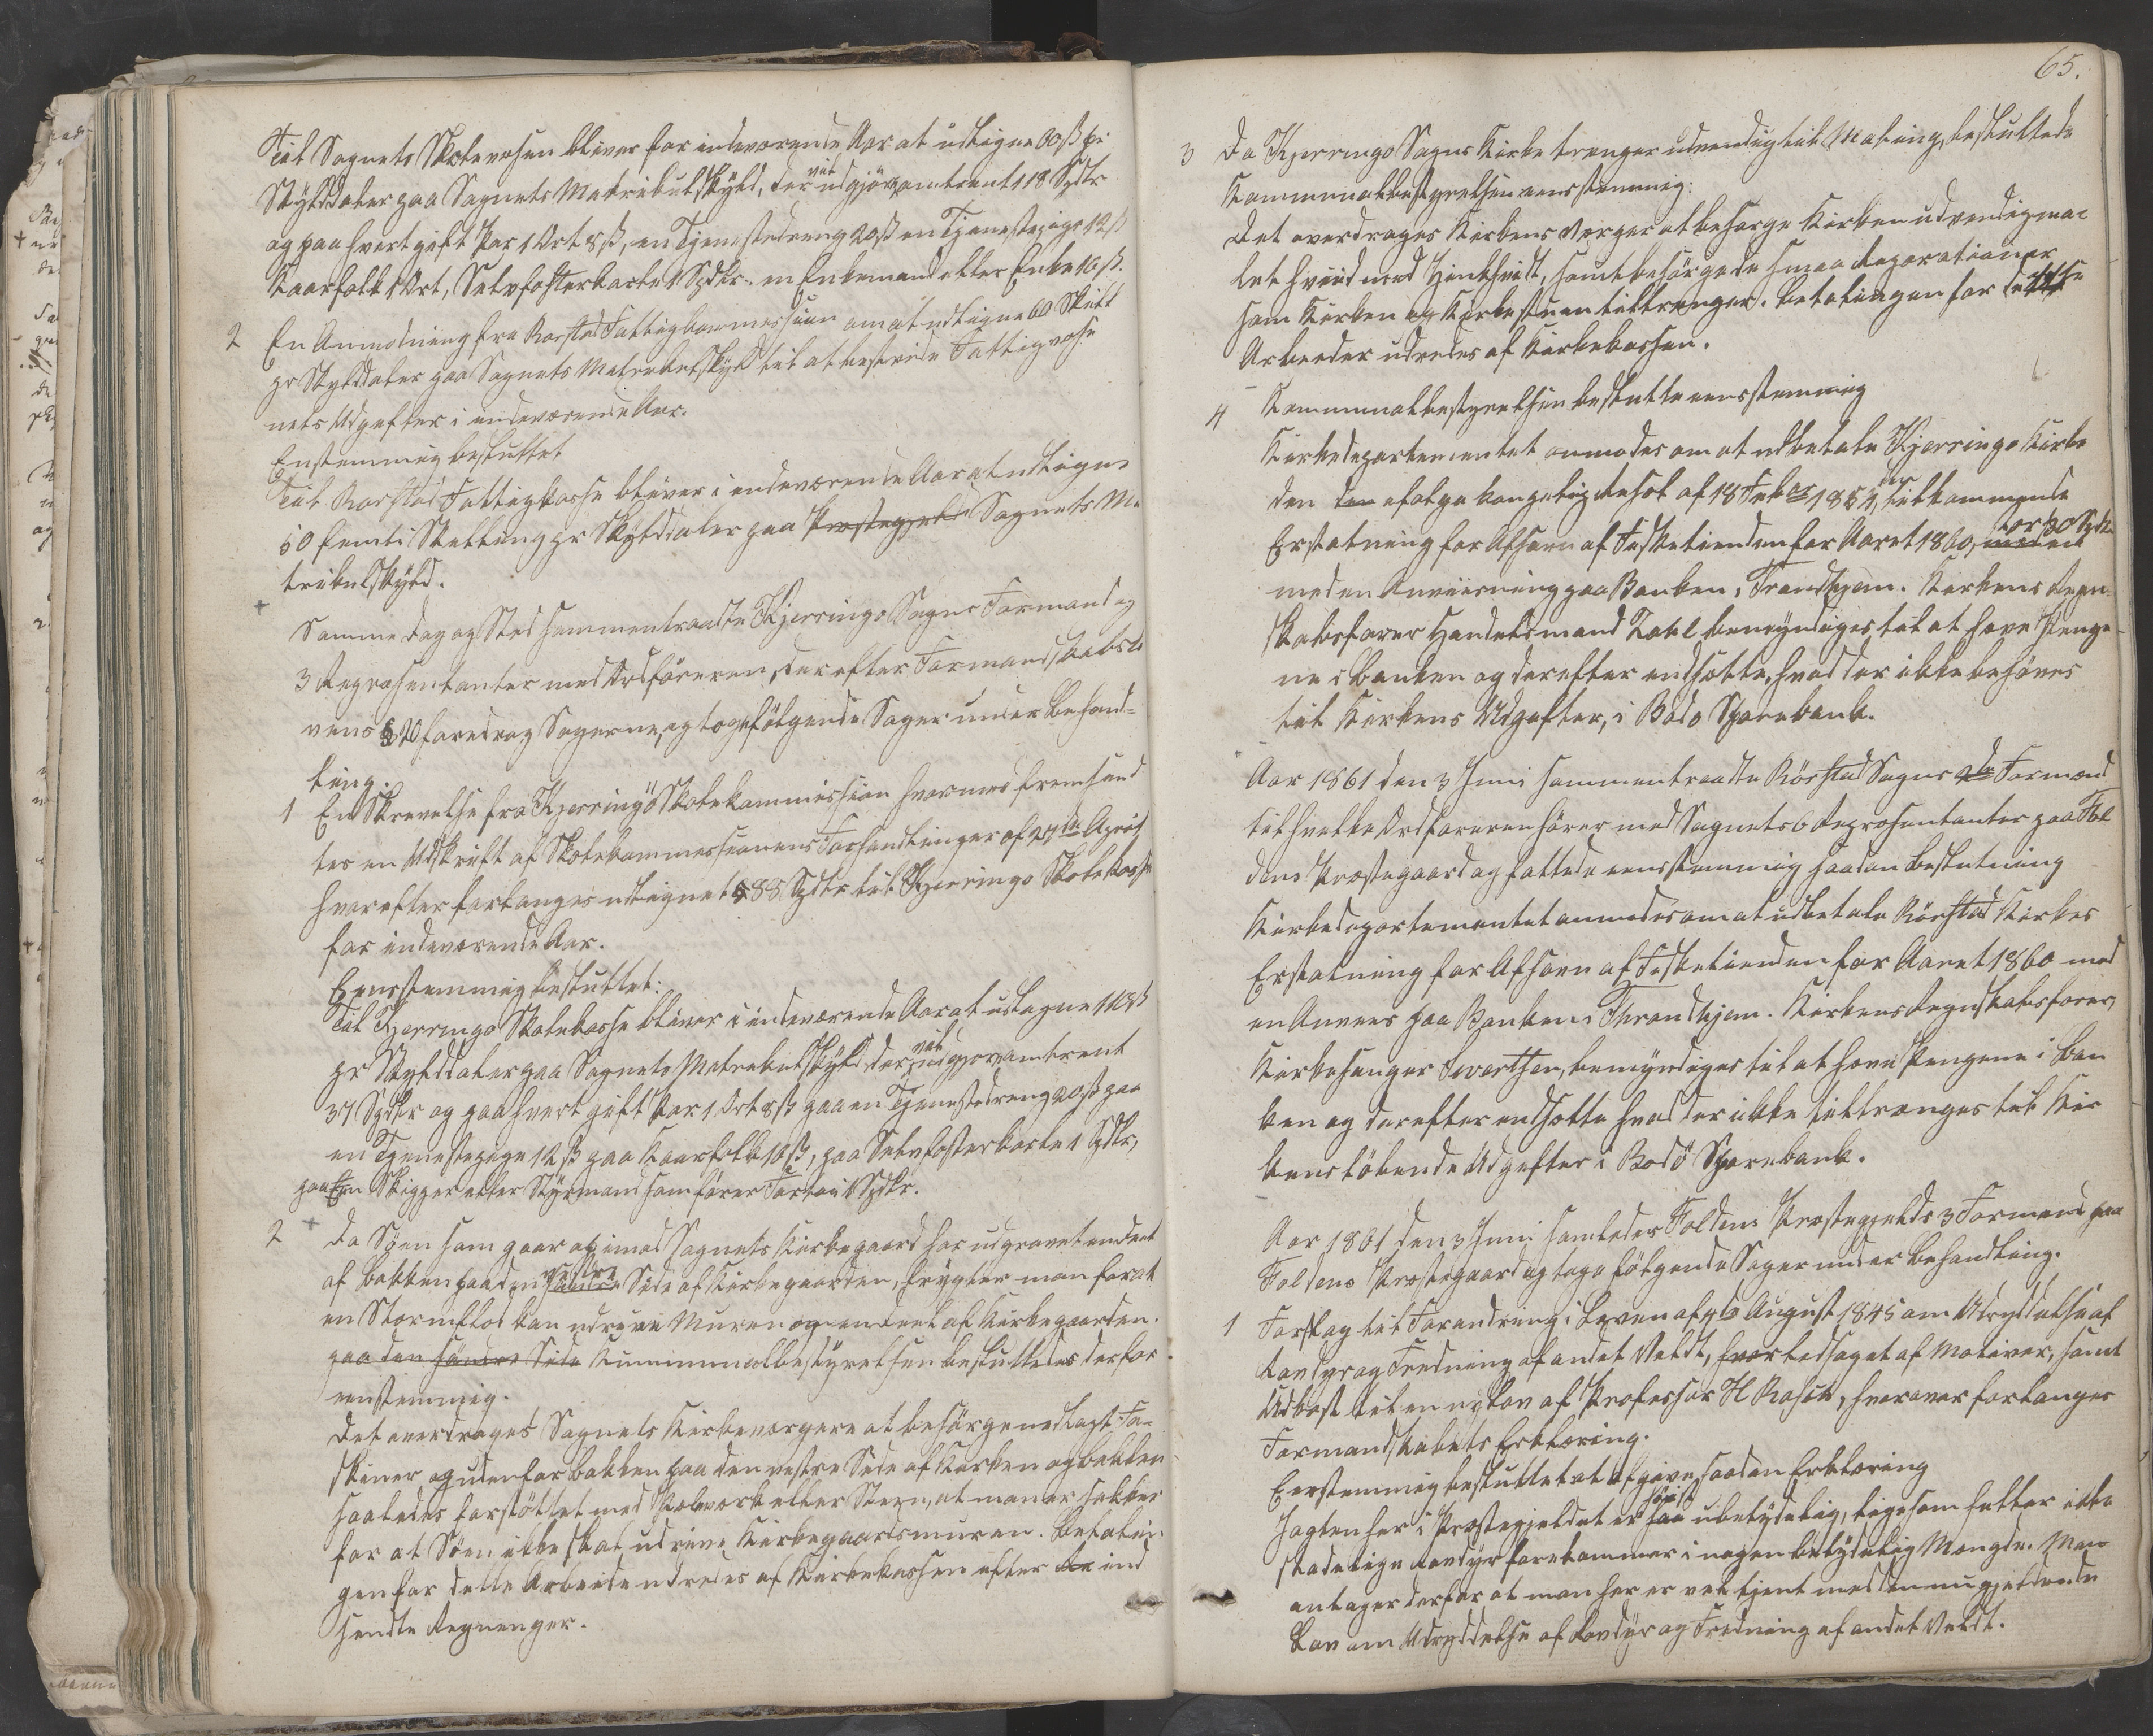 Til Sognets Skolevæsen bliver for indeværende Aar at udligne 60 ß pr
Skylddaler paa Sognets Matrikulskyld, der vil udgjøre omtrent 118 Spdlr
og paa hvert gift Par 1 Ort 8 ß, en Tjenestedreng 20 ß en Tjenestepige 12 ß
Kaarfolk 1 Ort, Selvfosterkarle 1 Spdlr. en Enkemand eller Enke 10 ß.
2 En Anmodning fra Rørstad Fattigkommission om at udligne 60 Skill
pr Skylddaler paa Sognets Matrikulskyld til at bestride Fattigvæse
nets Udgifter i indeværende Aar.
Enstemmig besluttet
Til Rørstad Fattigkasse bliver i indeværende Aar at udligne
50 femti Skilling pr Skylddaler paa Præstegjeld Sognets Ma
trikulskyld.
+ Samme Dag og Sted sammentraadte Kjerringø Sogns Formand og
3 Repræsentanter med Ordføreren, der efter Formandskabslo
vens § 20 foredrog Sagerne, og toges følgende Sager under Behand=
ling.
1 En Skrivelse fra Kjerringø Skolekommission hvormed fremsend
tes en Udskrift af Skolekommissionens Forhandlinger af 27de April
hvorefter forlanges udlignet 88 Spdlr til Kjerringø Skolekasse
for indeværende Aar.
Eensstemmig besluttet:
Til Kjerringø Skolekasse bliver i indeværende Aar at udligne 118 ß
pr Skylddaler paa Sognets Matrikulskyld, der vil udgjøre omtrent
37 Spdlr og paa hvert gift Par 1 Ort 8 ß paa en Tjenestedreng 20 ß paa
en Tjenestepige 12 ß paa Kaarfolk 10 ß, paa Selvfosterkarle 1 Spdlr,
paa En Skipper eller Styrmand som fører Fartøi 1 Spdlr.
2 + Da Søen som gaar op imod Sognets Kirkegaard har udgravet endeel
af Bakken paa den søndre vestre Side af Kirkegaarden, frygter man for at
en Stormflod kan udrive Muren og endeel af Kirkegaarden.
paa den søndre Side Kummunalbestyrelsen besluttedes derfor
eenstemmig.
Det overdrages Sognets Kirkeværgere at besørge nedlagt Fa=
skiner og udenfor Bakken paa den vestre Side af Kirken og Bakken
saaledes forstøttet med Pæleværk eller Steen, at man er sikker
for at Søen ikke skal udrive Kirkegaardsmuren. Betalin=
gen for dette Arbeide udredes af Kirkekassen efter de ind
sendte Regninger.
65.
3 Da Kjerringø Sogns Kirke trænger udvendig til Maling, besluttede
Kommunalbestyrelsen eensstemmig:
Det overdrages Kirkens Værger at besørge Kirken udvendig ma=
let hviid med Zinkhvidt, samt besørge de smaa Reparationer
som Kirken og Kirkestuen tiltrænger. Betalingen for disse
Arbeider udredes af Kirkekassen.
4 Kommunalbestyrelsen beslutte eensstemmig
Kirkedepartementet anmodes om at udbetale Kjerringø Kirke
den den ifølge kongelig Resol af 18 Febr 1851, tilkommende
Erstatning for Afsavn af Fisketienden for Aaret 1860, med en stor 30 Spdlr
med en Anviisning paa Banken i Trondhjem. Kirkens Regn=
skabsfører Handelsmand Zahl bemyndiges til at hæve Penge
ne i Banken og derefter indsætte, hvad der ikke behøves
til Kirkens Udgifter, i Bodø Sparebank.
Aar 1861 den 3 Juni sammentraadte Rørstad Sogns Formænd
til hvilke Ordføreren hører med Sognets 6 Repræsentanter paa Fol
dens Præstegaard og fattede eensstemmig saadan Beslutning
Kirkedepartementet anmodes om at udbetale Rørstad Kirkes
Erstatning for Afsavn af Fisketienden for Aaret 1860 med
en Anviis paa Banken i Throndhjem. Kirkens Regnskabsfører,
Kirkesanger Sivertsen, bemyndiges til at hæve Pengene i Ban
ken og derefter indsætte hvad der ikke tiltrænges til Kir
kens løbende Udgifter i Bodø Sparebank.
Aar 1861 den 3 Juni samledes Foldens Præstegjelds 3 Formænd paa
Foldens Præstegaard og toge følgende Sager under Behandling.
1 Forslag til Forandring i Loven af 4de August 1845 om Udryddelse af
Rovdyr og Fredning af andet Vildt, hvor ledsaget af Motiver, samt
Udkast til en ny Lov af Professor H Rasch, hvorover forlanges
Formandskabets Erklæring.
Eenstemmig besluttet at afgive saadan Erklæring
Jagten her i Præstegjeldet er saa høist ubetydelig, ligesom heller ikke
skadelige Rovdyr forekommer i nogen betydelig Mængde. Man
antager derfor at man her er vel tjent med den nugjeldende
Lov om Udryddelse af Rovdyr og Fredning af andet Vildt.